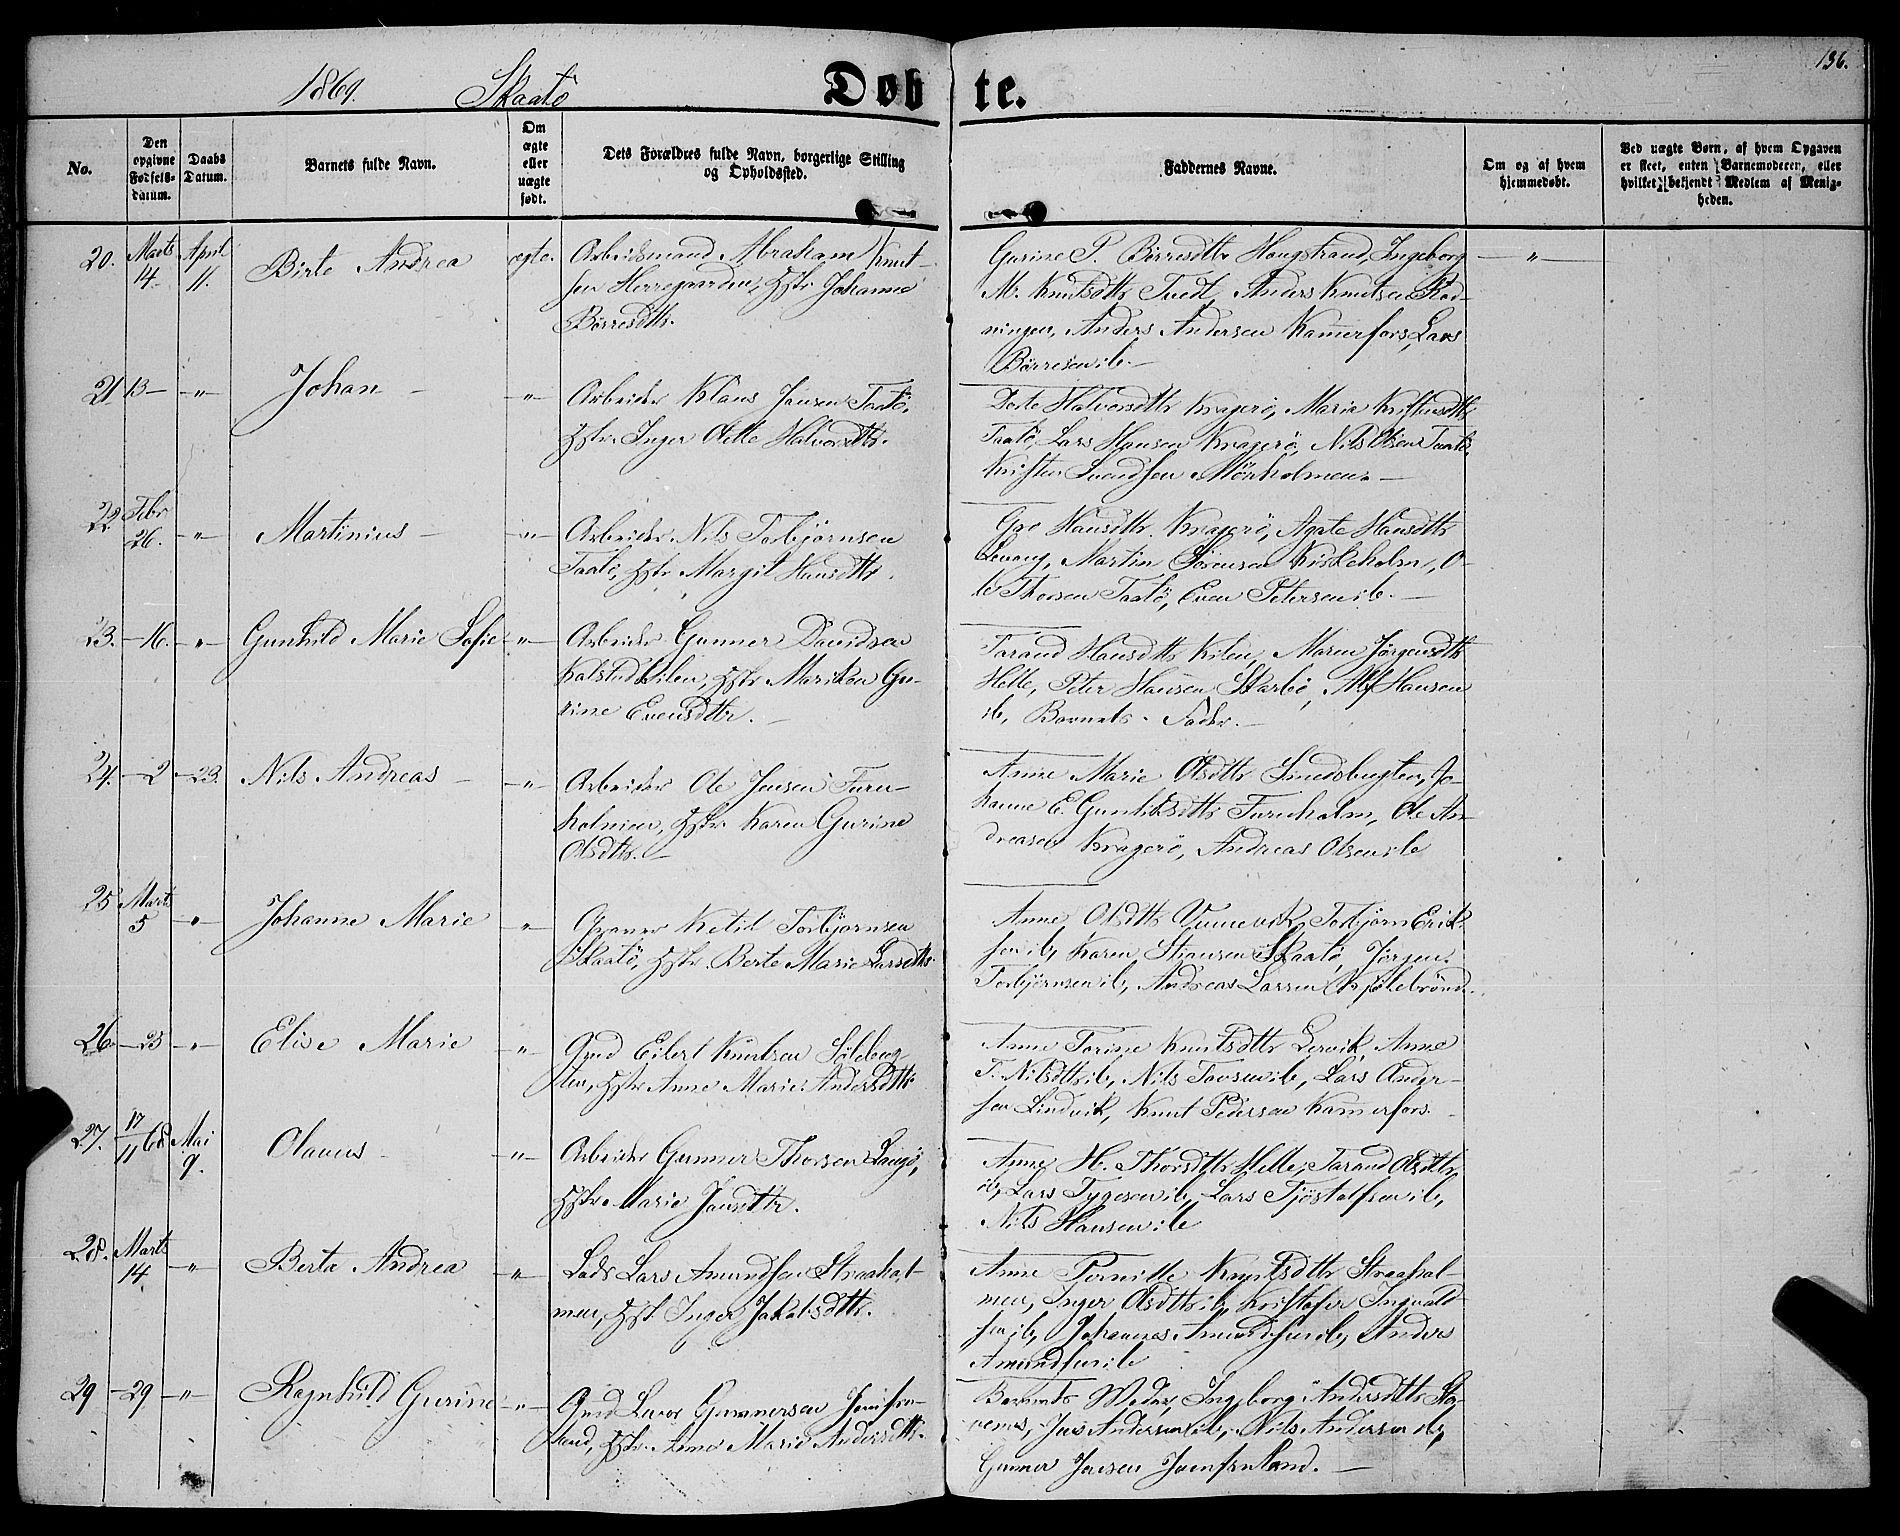 136.
1869. Skaatö Døbte.
No.
Den opgivne Fødsels-datum.
Daabs Datum.
Barnets fulde Navn.
Om ægte eller uægte født.
Dets Forældres fulde Navn, borgerlige Stilling og Opholdssted.
Faddernes Navne.
Om og af hvem hjemmedøbt.
Ved uægte Børn, af hvem Opgaven er skeet, enten Barnemoderen, eller hvilket bekjendt Medlem af Menigheden.
20. Marts 14. April 11. Birte Andrea ægte. Arbeidsmand Abraham Knut-
sen Herregaarden, Hstr Johanne
Börresdttr.
Gurine P. Börresdttr Haugstrand, Ingeborg
M. Knutsdttr Tvedt, Anders Knutsen Rød-
ningen, Anders Andersen Kammerfors, Lars
Börresen ib. —
— „ —
21 13 — „ — Johan — — „ — Arbeider Klaus Jansen Taatö,
Hstr. Inger Oelle Halvorsdttr.
Dorte Halvorsdttr Kragerö, Maria Kristensdttr
Taatö, Lars Hansen Kragerö, Nils Olsen Taatö,
Kristen Svendsen Mörkholmen. —
22 Febr 26. — „ — Martinius — — „ — Arbeider Nils Torbjörnsen
Taatö, Hstr Margit Hansdttr.
Gro Hansdttr. Kragerö, Agate Hansdttr
Levang, Martin Sörensen Kirkeholm, O-
le Thorsen Taatö, Even Petersen ib. —
23. — 16. — „ — Gunhild Marie Sofie — „ — Arbeider Gunner Davidsen
Kalstadkilen, Hstr Mariken Gu-
rine Evensdttr. —
Tarand Hansdttr Kilen, Maren Jörgensdttr
Helle, Peter Hansen Skarbö, Alf Hansen
ib, Barnets Fader. —
24. — 2 — 23. Nils Andreas — — „ — Arbeider Ole Jensen Furu-
holmen, Hstr. Karen Gurine
Olsdttr. —
Anne Marie Olsdttr Smedsbugten, Jo-
hanne E. Gunhildsdttr Furuholm, Ole An-
dreasen Kragerö, Andreas Olsen ib
25 Marts 5 — „ — Johanne Marie — „ — Ketil Torbjörnsen
Skaatö, Hstr. Berte Marie Larsdttr.
Anne Olsdttr Torbjörn Erik-
sen ib, Karen Stiansen Skaatö, Jörgen
Torbjörnsen ib, Andreas Larsen Kjölebrönd.
26. — 25 — „ — Elise Marie — „ — Gmd Eilert Knutsen Sölebug-
ten, Hstr Anne Marie Andersdttr
Anne Torine Knutsdttr Lervik, Anne
T. Nilsdttr ib, Nils Tovsen ib, Lars Ander-
sen Lindvik, Knut Pedersen Kammerfors.
27. 17/11 68 Mai 9. Olaus — — „ — Arbeider Gunner Thorsen Langö,
Hstr Marie Jansdttr.
Anne H. Thorsdttr Helle, Tarand Olsdttr
ib, Lars Tygesen ib, Lars Tjöstolfsen ib,
Nils Hansen ib
28. Marts 14. — „ — Berta Andrea — „ — Lods Lars Amundsen Straahol-
men, Hstr Inger Jakobsdttr.
Anne Pernille Knutsdttr Straahol-
men, Inger Olsdttr ib, Kristofer Ingvald-
sen ib, Johannes Amundsen ib, Anders
Amundsen ib
29 — 29 — „ — Ragnhild Gurine — „ — Gmd Levor Gunnersen Jomfru-
land, Hstr. Anne Marie Andersdttr.
Barnets Moder, Ingeborg Andersdttr
Jens Andersen ib, Nils Andersen ib,
Gunner Jensen Jomfruland. —